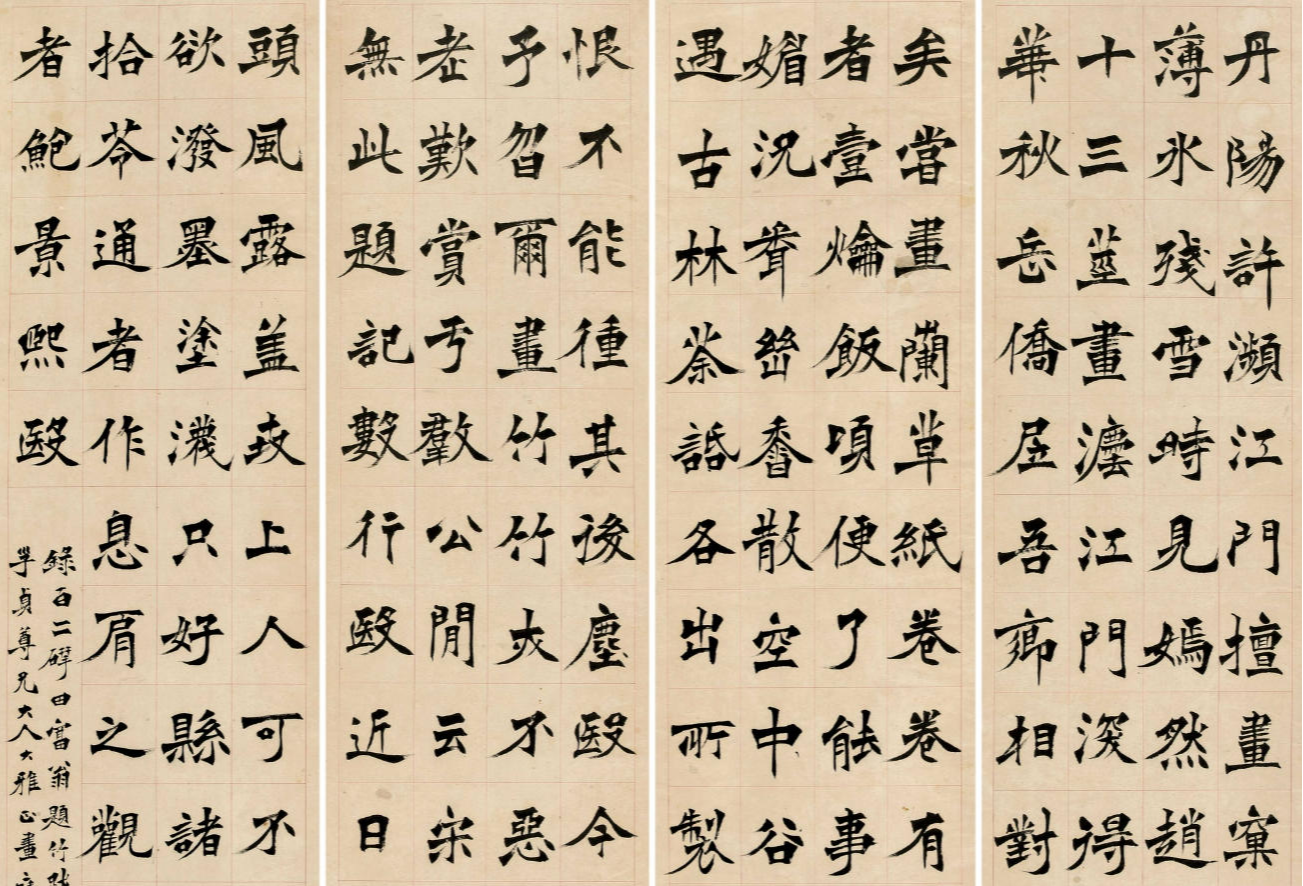 丹陽許瀕江門擅畫窠
薄氷殘雪時見嫣然趙
十三莖畫瀍江門深得
華秋岳僑居吾鄉相對
矣甞畫蘭草紙卷卷有
者壹爚飯頃便了能事
媚況香散空中谷
遇古林茶話各出所製
恨不能徸其後塵殹今
予曶爾畫竹竹亦不惡
老歎賞于羣公閒云宋
無此題記數行殹近日
頭風露盖政上人可不
欲潑墨塗瀎只好縣諸
拾苓通者作息肩之觀
者鮑景熙殹
錄百二硯田富翁題竹跋
孚貞尊兄大人大雅正畫